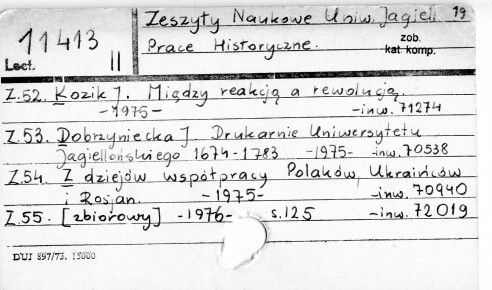 Zeszyty Naukowe Uniw. Jagiell. 19
11413 II
Lect.
Prace Historyczne.
zob.
kat. komp.
Z.52. Kozik J. Między reakcją a rewolucją.
-1975- -inw. 71274
Z.53. Dobrzyniecka J. Drukarnie Uniwersytetu
Jagiellońskiego 1674-1783 -1975- -inw. 70538
Z.54. Z dziejów współpracy Polaków, Ukraińców
i Rosjan. -1975- -inw. 70940
Z.55. [zbiorowy] -1976- s.125 -inw. 72019
DUJ 897/73. 15000